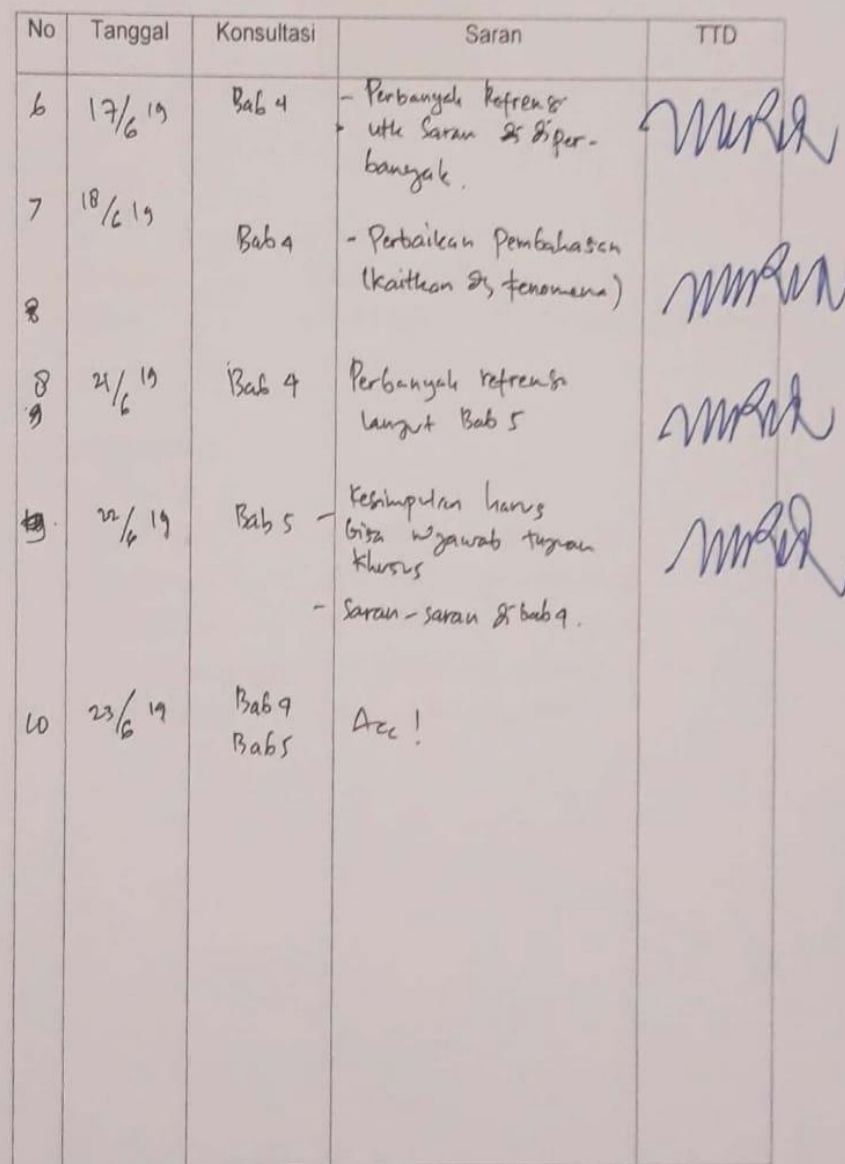 No Tanggal Konsultasi Saran TTD
6 17/6 19 Bab 4 - Perbanyak Refrensi
utk Saran di diper-
banyak.
7 18/6 19
Bab 4 - Perbaikan Pembahasan
(kaitkan dg fenomena)
8
8 21/6 19 Bab 4 Perbanyak refrensi
9 lanjut Bab 5
22/6 19 Bab 5 - Kesimpulan harus
bisa mjawab tujuan
khusus
- Saran-saran di bab 4.
10 23/6 19 Bab 4
Bab 5 Acc!